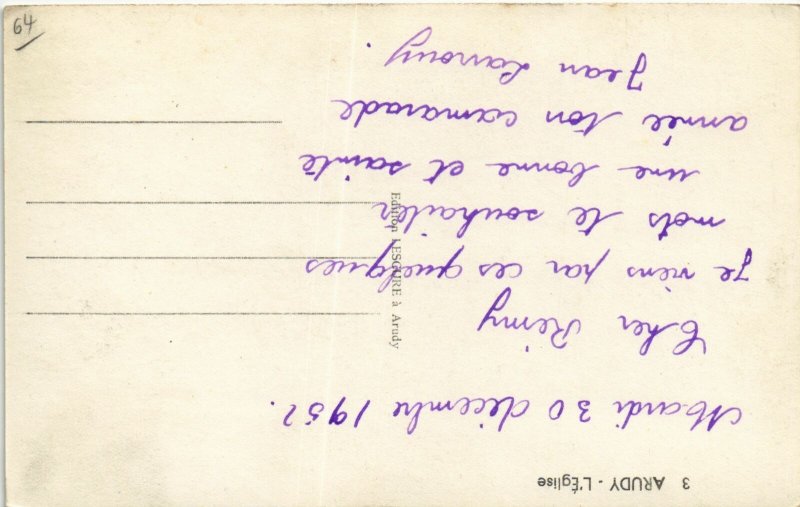 3 ARUDY - L'Église
Mardi 30 décembre 1952.
Cher Rémy
Je viens par ces quelques
mots te souhaiter
une bonne et sainte
année ton camarade
Jean Lanouy.
Edition LESGURE à Arudy
64